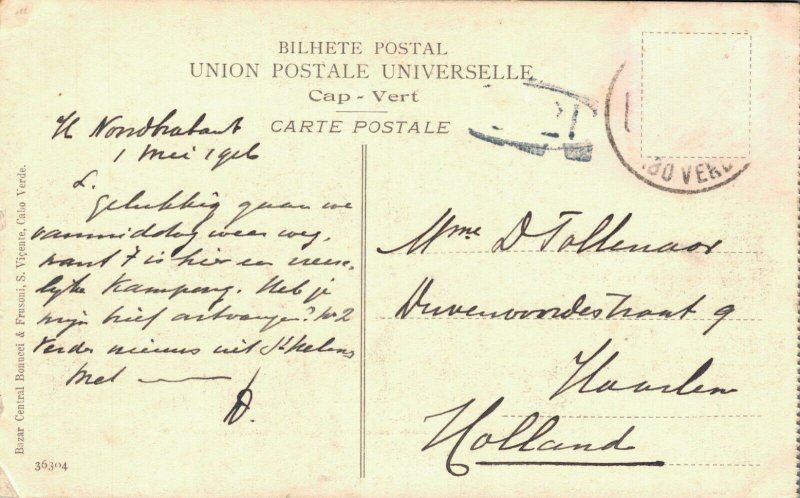 BILHETE POSTAL
UNION POSTALE UNIVERSELLE
Cap-Vert
CARTE POSTALE
Noordbrabant
1 Mei 1926
L.
Gelukkig gaan we
vanmiddag weer weg,
want 't is hier een vrese-
lijke Kampong. Heb je
mijn brief ontvangen? No 2
Verder nieuws uit St Helena
Met
D.
Mme D Tollenaar
Duvenvoordestraat 9
Haarlem
Holland
BO VERD
Bazar Central Bonucci & Frusoni, S. Viçente, Cabo Verde.
36304